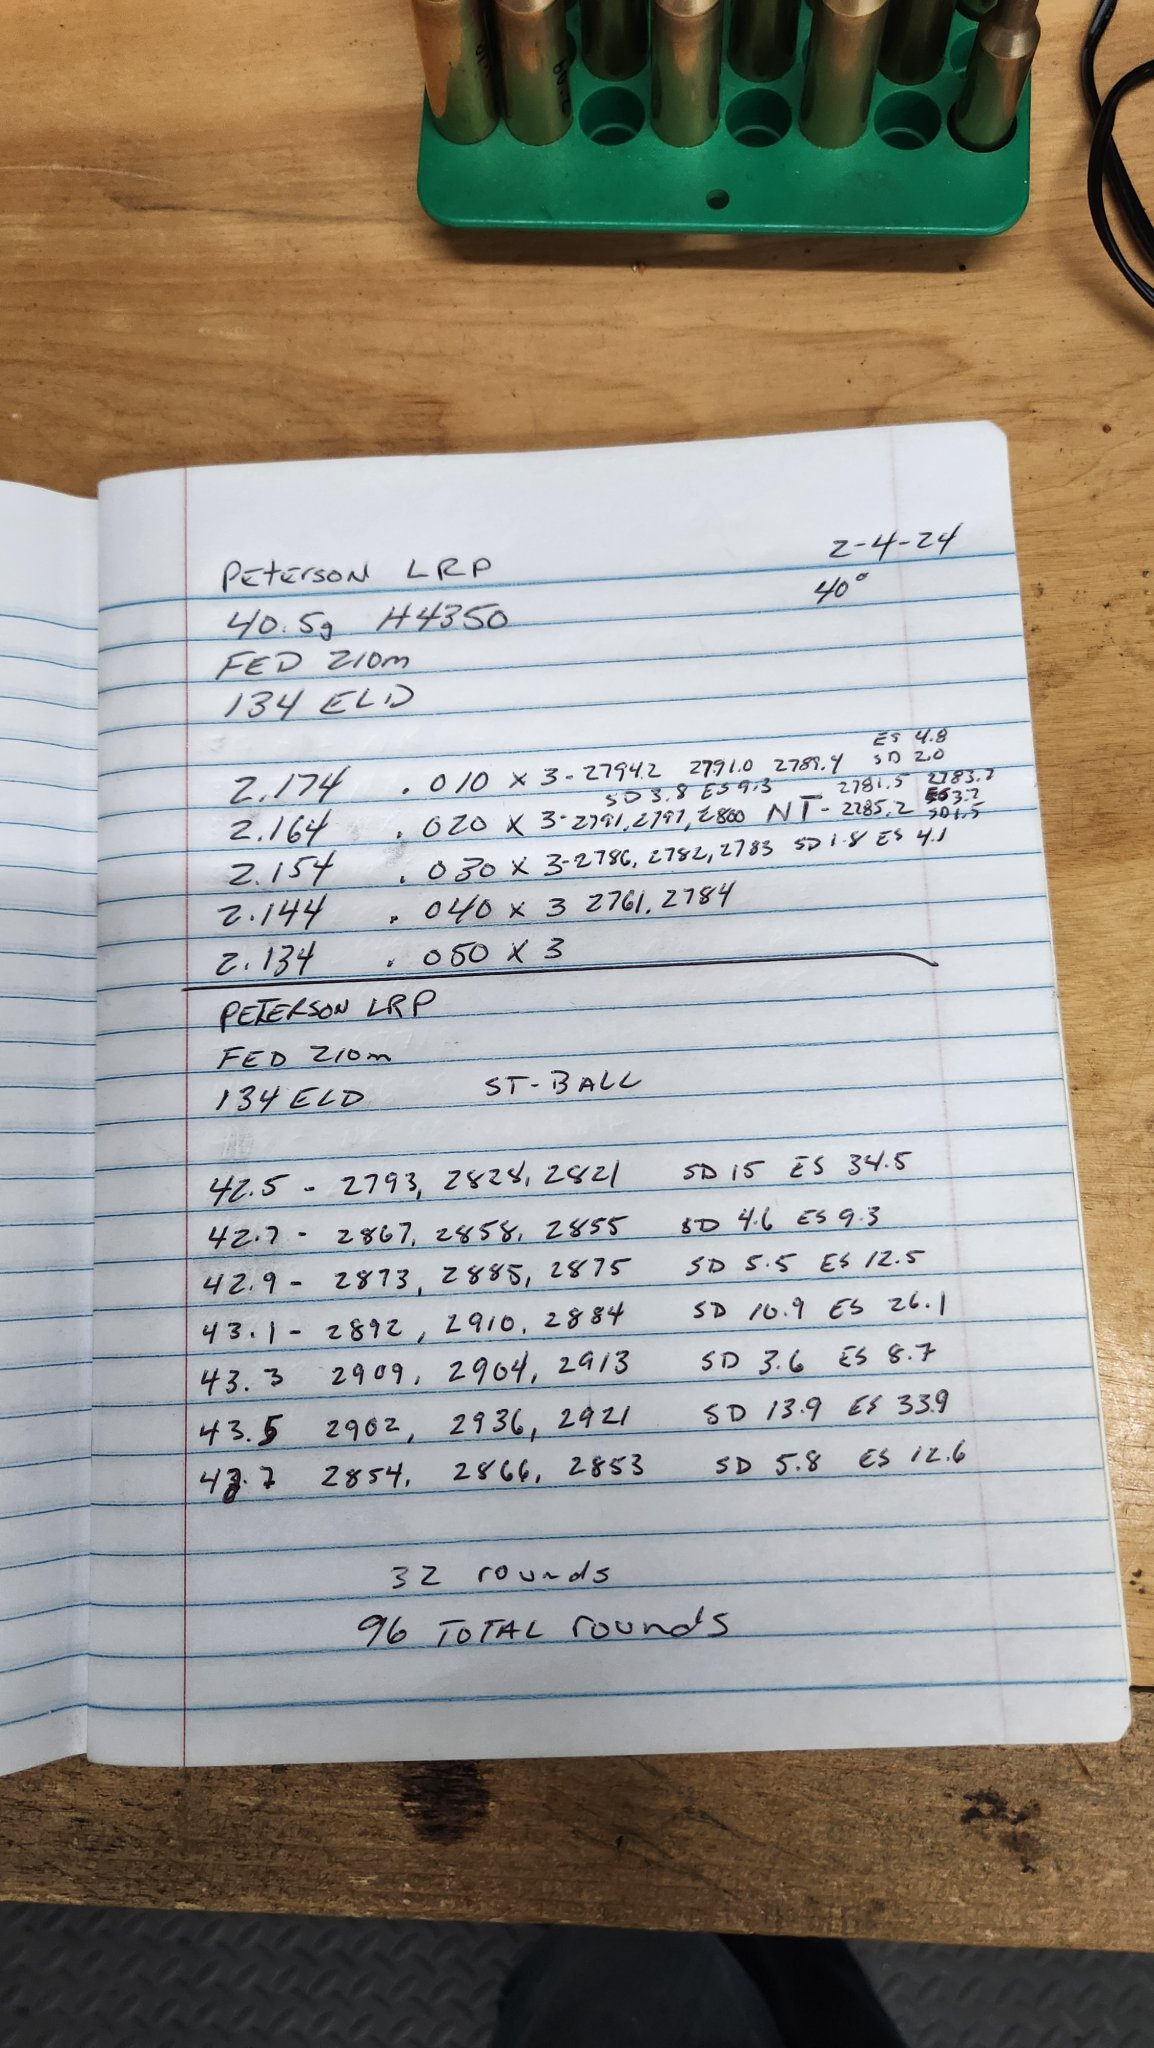 2-4-24
PETERSON LRP
40°
40.5g H4350
FED 210m
134 ELD
ES 4.8
2.174 .010 x 3 - 2794.2 2791.0 2789.4 SD 2.0
SD 3.8 ES 9.3 2781.5 2783.7
2.164 .020 x 3 - 2791, 2797, 2800 NT - 2285.2 ES 3.7
SD 1.5
2.154 .030 x 3 - 2786, 2782, 2783 SD 1.8 ES 4.1
2.144 .040 x 3 2761, 2784
2.134 .050 x 3
PETERSON LRP
FED 210m
134 ELD ST-BALL
42.5 - 2793, 2828, 2821 SD 15 ES 34.5
42.7 - 2867, 2858, 2855 SD 4.6 ES 9.3
42.9 - 2873, 2885, 2875 SD 5.5 ES 12.5
43.1 - 2892, 2910, 2884 SD 10.9 ES 26.1
43.3 2909, 2904, 2913 SD 3.6 ES 8.7
43.5 2902, 2936, 2921 SD 13.9 ES 33.9
43.7 2854, 2866, 2853 SD 5.8 ES 12.6
32 rounds
96 TOTAL rounds